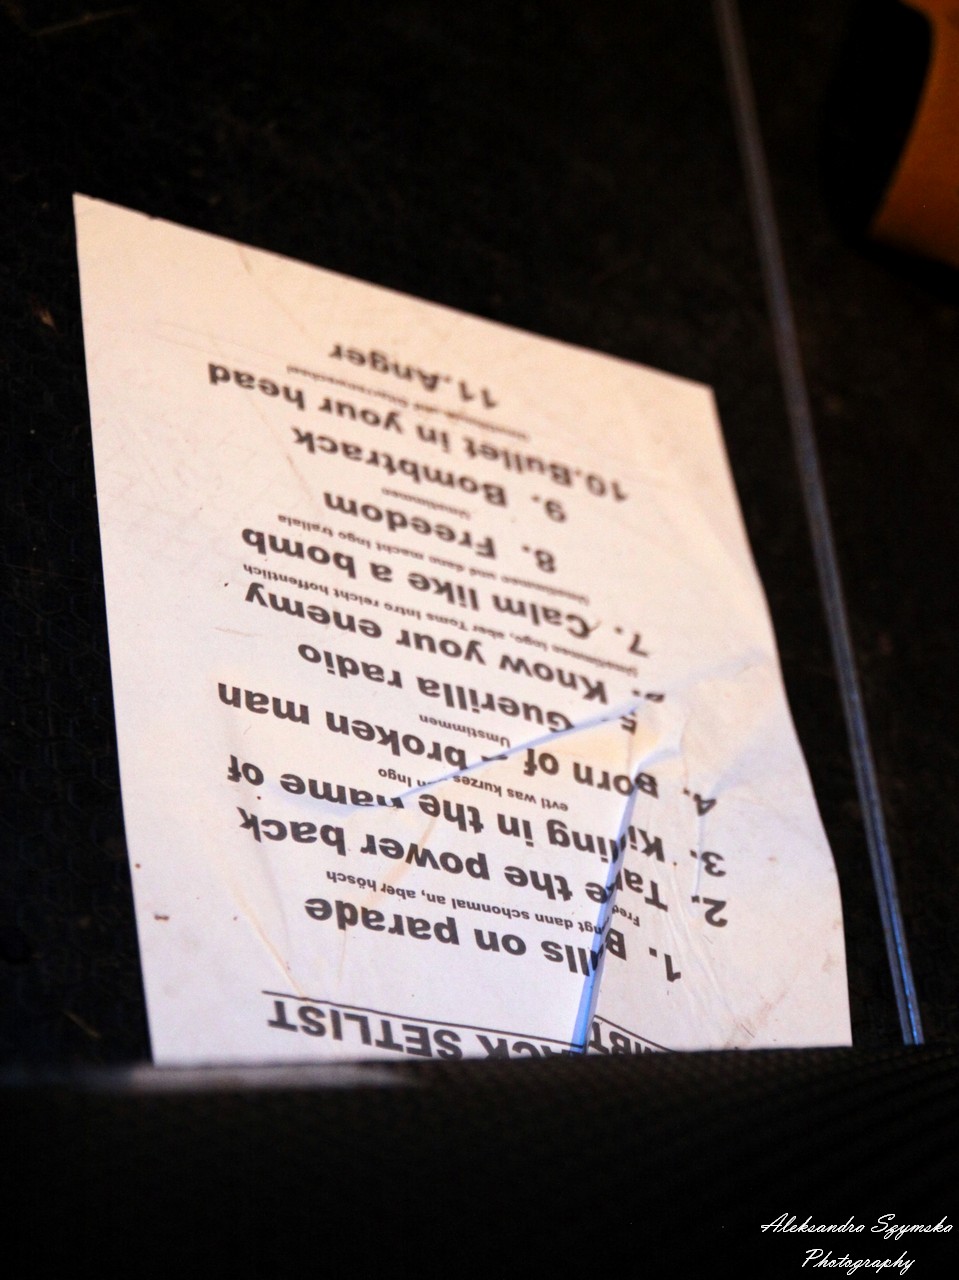 SETLIST
1. Bulls on parade
dann schonmal an, aber hösch
2. Take the power back
3. Killing in the name of
evtl was kurzes von Ingo
4. Born of - broken man
Umstimmen
5. Guerilla radio
6. Know your enemy
Umstimmen Ingo, aber Toms Intro reicht hoffentlich
7. Calm like a bomb
Umstimmen und dann macht Ingo trallala
8. Freedom
Umstimmen
9. Bombtrack
10.Bullet in your head
11.Anger
Aleksandra Szymska
Photography